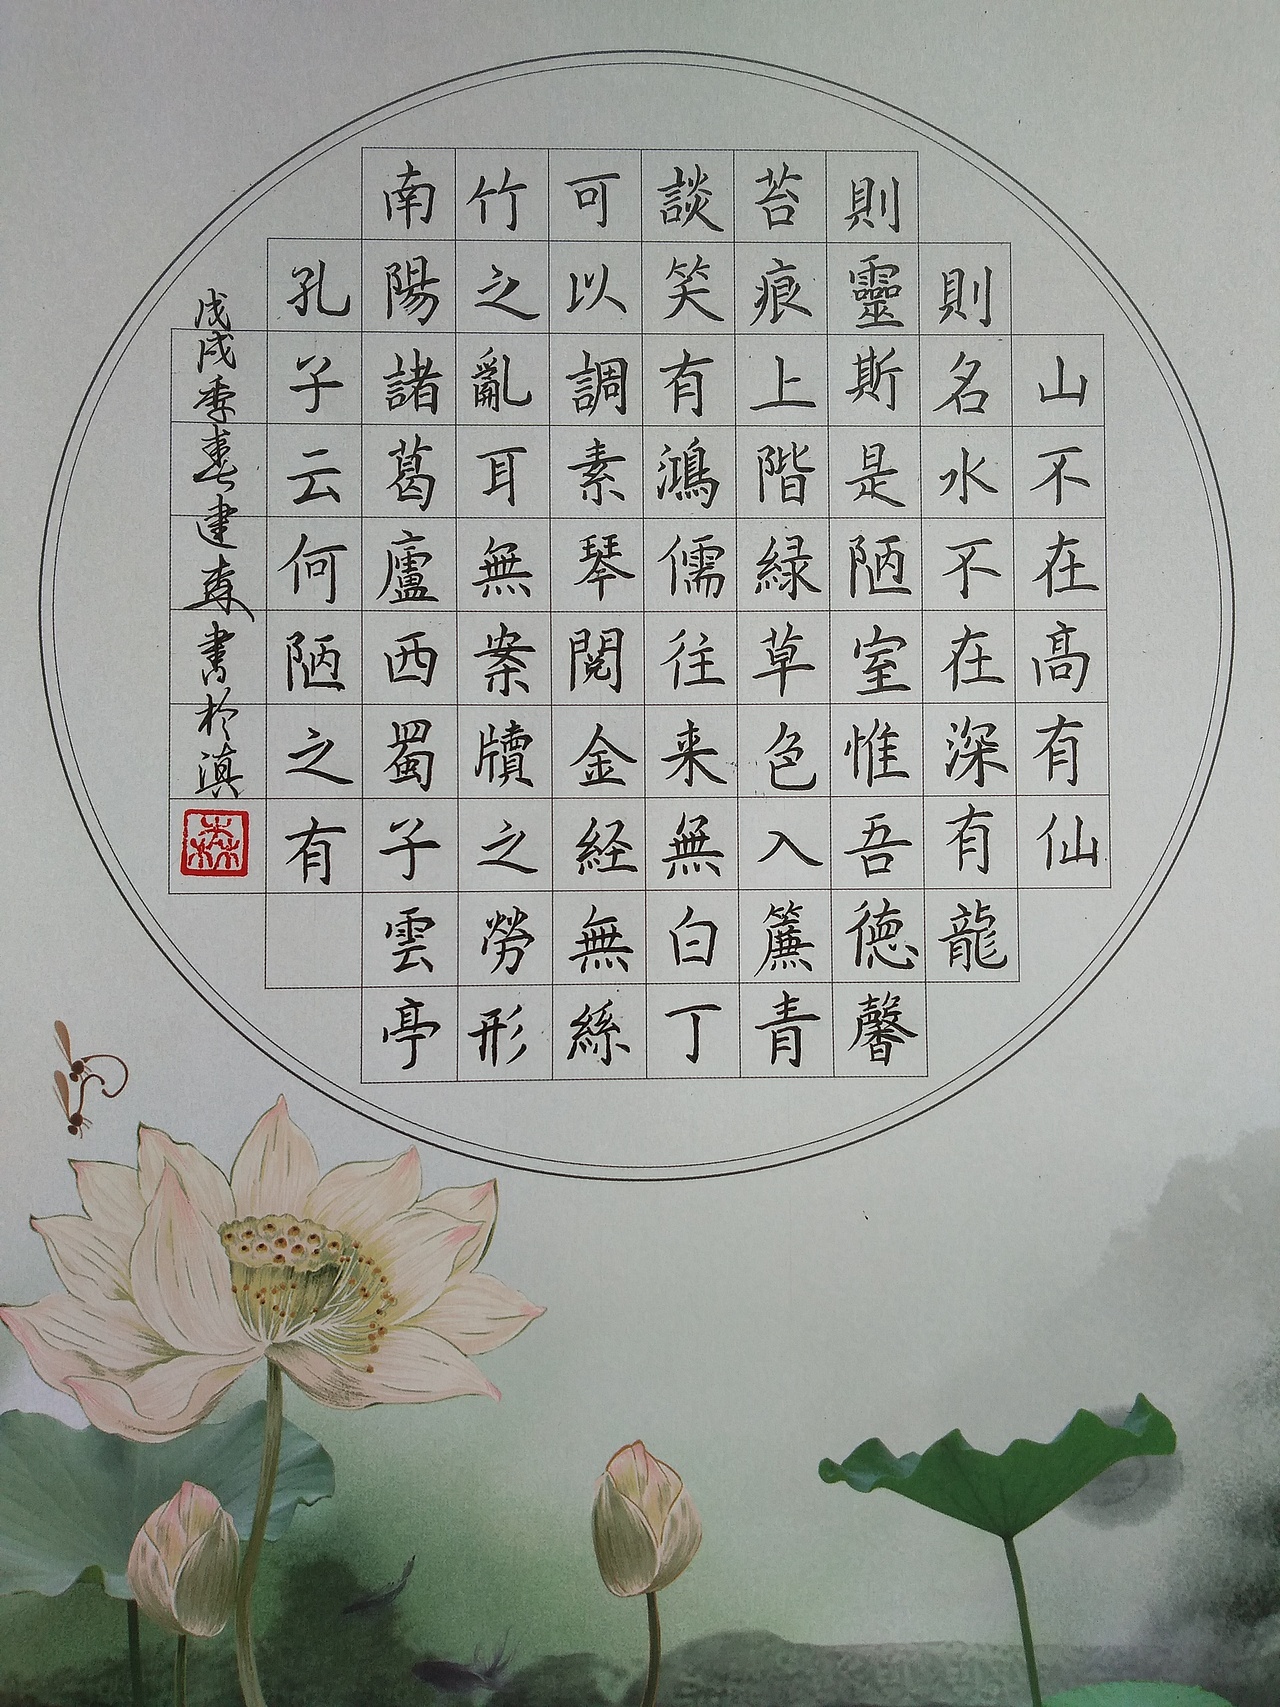 山不在高有仙
則名水不在深有龍
則靈斯是陋室惟吾徳馨
苔痕上階緑草色入簾青
談笑有鴻儒往来無白丁
可以調素琴閱金経無絲
竹之亂耳無案牘之勞形
南陽諸葛廬西蜀子雲亭
孔子云何陋之有
戊戌季春建森書於滇
森